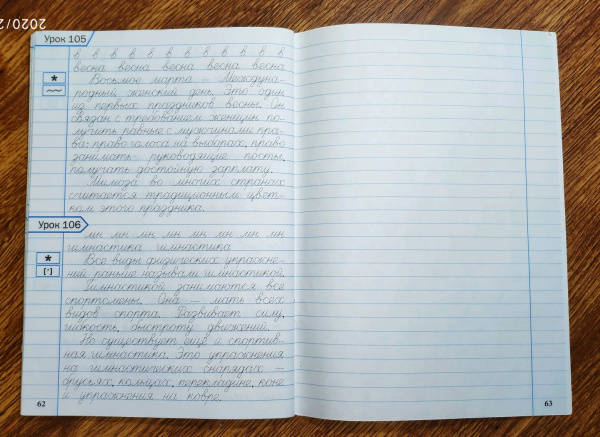 2020/2
Урок 105
в в в в в в в в в в в в
весна весна весна весна весна
Восьмое марта – Междуна-
родный женский день. Это один
из первых праздников весны. Он
связан с требованием женщин по-
лучить равные с мужчинами пра-
ва: право голоса на выборах, право
занимать руководящие посты,
получать достойную зарплату.
Мимоза во многих странах
считается традиционным цвет-
ком этого праздника.
Урок 106
мн мн мн мн мн мн мн мн
гимнастика гимнастика
Все виды физических упражне-
ний раньше называли гимнастикой.
Гимнастикой занимаются все
спортсмены. Она – мать всех
видов спорта. Развивает силу,
гибкость, быстроту движений.
Но существует ещё и спортив-
ная гимнастика. Это упражнения
на гимнастических снарядах –
брусьях, кольцах, перекладине, коне
и упражнения на ковре.
62
63